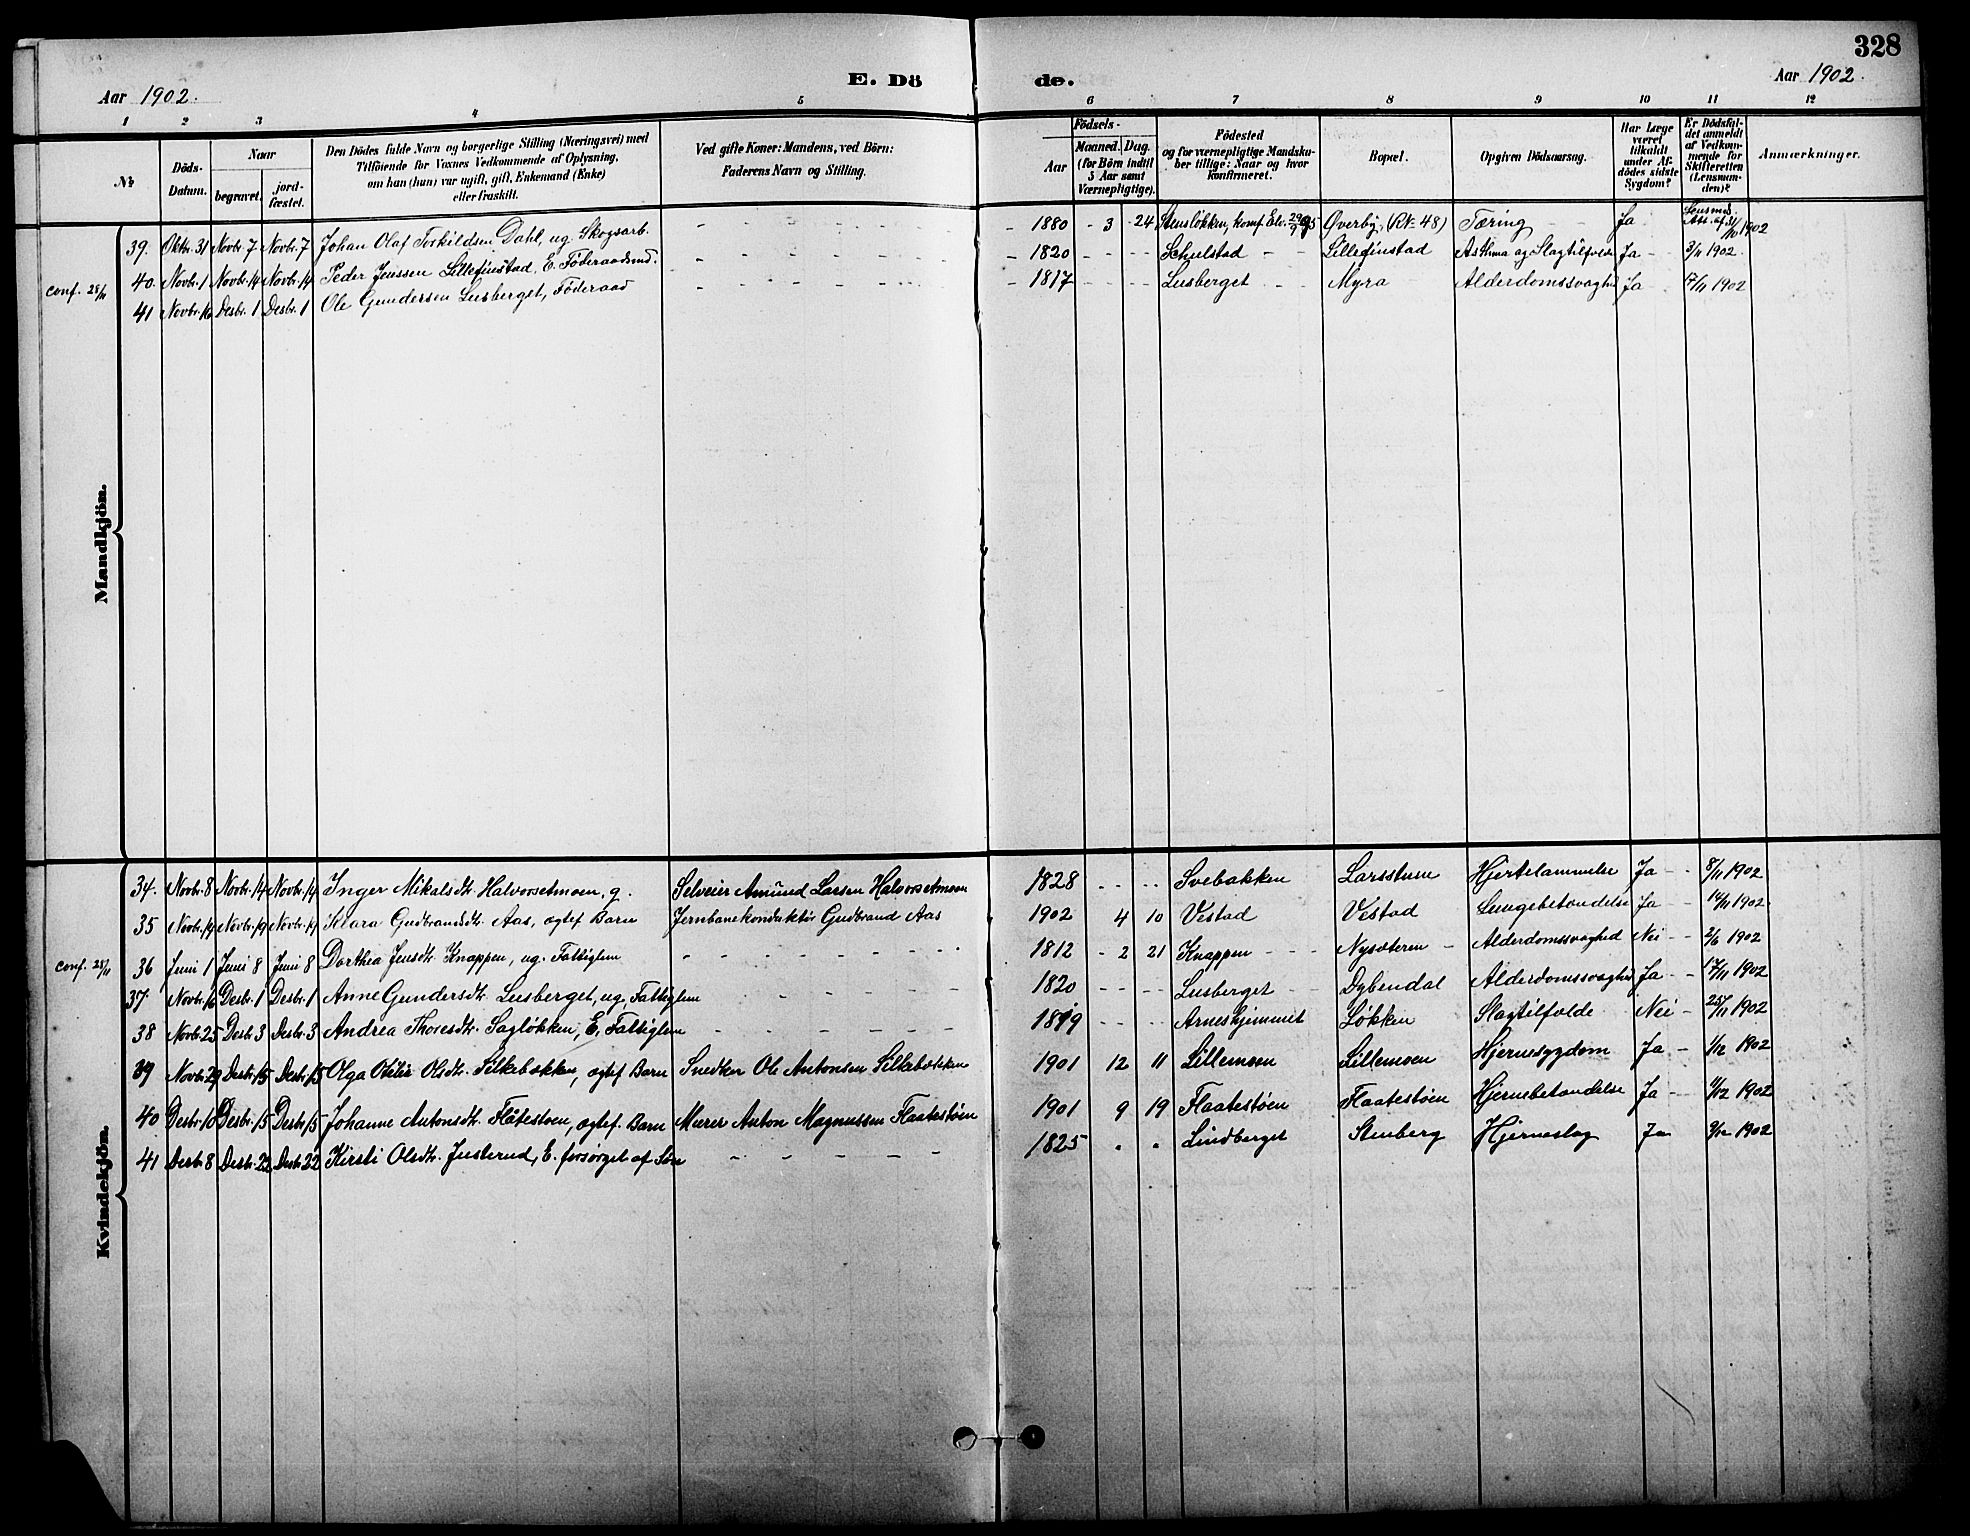 328
Aar 1902.
E. Dö
de.
Aar 1902.
1 2 3 4 5 6 7 8 9 10 11 12
№
Döds-Datum.
Naar
begravet.
jordfæstet.
Den Dödes fulde Navn og borgerlige Stilling (Næringsvei) med
Tilföiende for Voxnes Vedkommende af Oplysning,
om han (hun) var ugift, gift, Enkemand (Enke)
eller fraskilt.
Ved gifte Koner: Mandens, ved Börn:
Faderens Navn og Stilling.
Födsels-
Aar
Maaned.
Dag.
(for Börn indtil
5 Aar samt
Værnepligtige).
Födested
og for værnepligtige Mandsku-
ber tillige: Naar og hvor
konfirmeret.
Bopæl.
Opgiven Dödsaarsag.
Har Læge
været
tilkaldt
under Af-
dödes sidste
Sygdom?
Er Dödsfal-
det anmeldt
af Vedkom-
mende for
Skifteretten
(Lensman-
den)?
Anmærkninger.
Mandkjön.
39. Oktbr. 31 Novbr. 7 Novbr. 7 Johan Olaf Torkildsen Dahl, ug. Skogsarb. - - - - - 1880 - 3 - 24 Stensløkken, konf. Elv. 29/9 95 Øverby, (R№ 48) Tæring - Ja Lensmds. Att. af 31/10 1902
40. Novbr. 1 Novbr. 14 Novbr. 14 Peder Jenssen Lillefinstad, E. Föderaadsmd. - - - - - 1820 - - - - Schulstad - - Lillefinstad Asthma og Slagtilfælde Ja - 3/11 1902.
conf. 25/11
41 Novbr. 16 Desbr. 1 Desbr. 1 Ole Gundersen Lusberget, Föderaad - - - - - 1817 - - - - Lusberget - - Myra Alderdomssvaghed Ja 17/11 1902
Kvindekjön.
34. Novbr. 8 Novbr. 14 Novbr. 14 Inger Mikalsdtr. Halvorsetmoen, g. Selveier Amund Larsen Halvorsetmoen 1828 - - - - Svebakken Larsstuen Hjertelammelse Ja - - 8/11 1902
35 Novbr. 14 Novbr. 19 Novbr. 19 Klara Gudbrandsdtr. Aas, ægtef Barn Jernbanekonduktör Gudbrand Aas 1902 4 10 Vestad Vestad Lungebetændelse Ja - 14/11 1902.
conf. 25/11
36 Juni 1 Juni 8 Juni 8 Dorthea Jensdtr. Knappen, ug. Fattiglem - - - - - 1812 - 2 21 Knappen - - - Nysæteren - Alderdomssvaghed Nei - - 2/6 1902
37. Novbr. 16 Desbr. 1 Desbr. 1 Anne Gundersdtr. Lusberget, ug, Fattiglem - - - - 1820 - - - - Lusberget - - Dybendal Alderdomssvaghed Ja - - 17/11 1902
38 Novbr. 25 Desbr. 3 Desbr. 3 Andrea Thoresdtr. Sagløkken, E, Fattiglem - - - - - 1819 - - - - Arneshjemmet Løkken Slagtilfælde Nei - 25/11 1902
39 Novbr. 29 Desbr. 15 Desbr. 15 Olga Otilie Olsdtr. Silkebækken, ægtef Barn Snedker Ole Antonsen Silkebækken 1901 12 11 Lillemoen Lillemoen Hjernesygdom Ja - 1/12 1902
40 Desbr. 10 Desbr. 15 Desbr. 15 Johanne Antonsdtr. Flåtestøen, ægtef. Barn Murer Anton Magnussen Flaatestøen 1901 9 19 Flaatestøen Flaatestøen Hjernebetændelse Ja - 11/12 1902
41 Desbr. 8 Desbr. 22 Desbr. 22 Kirsti Olsdtr. Justerud, E. forsørget af Søn - - - - - 1825 " " Lindberget Stenberg Hjerneslag Ja 9/12 1902